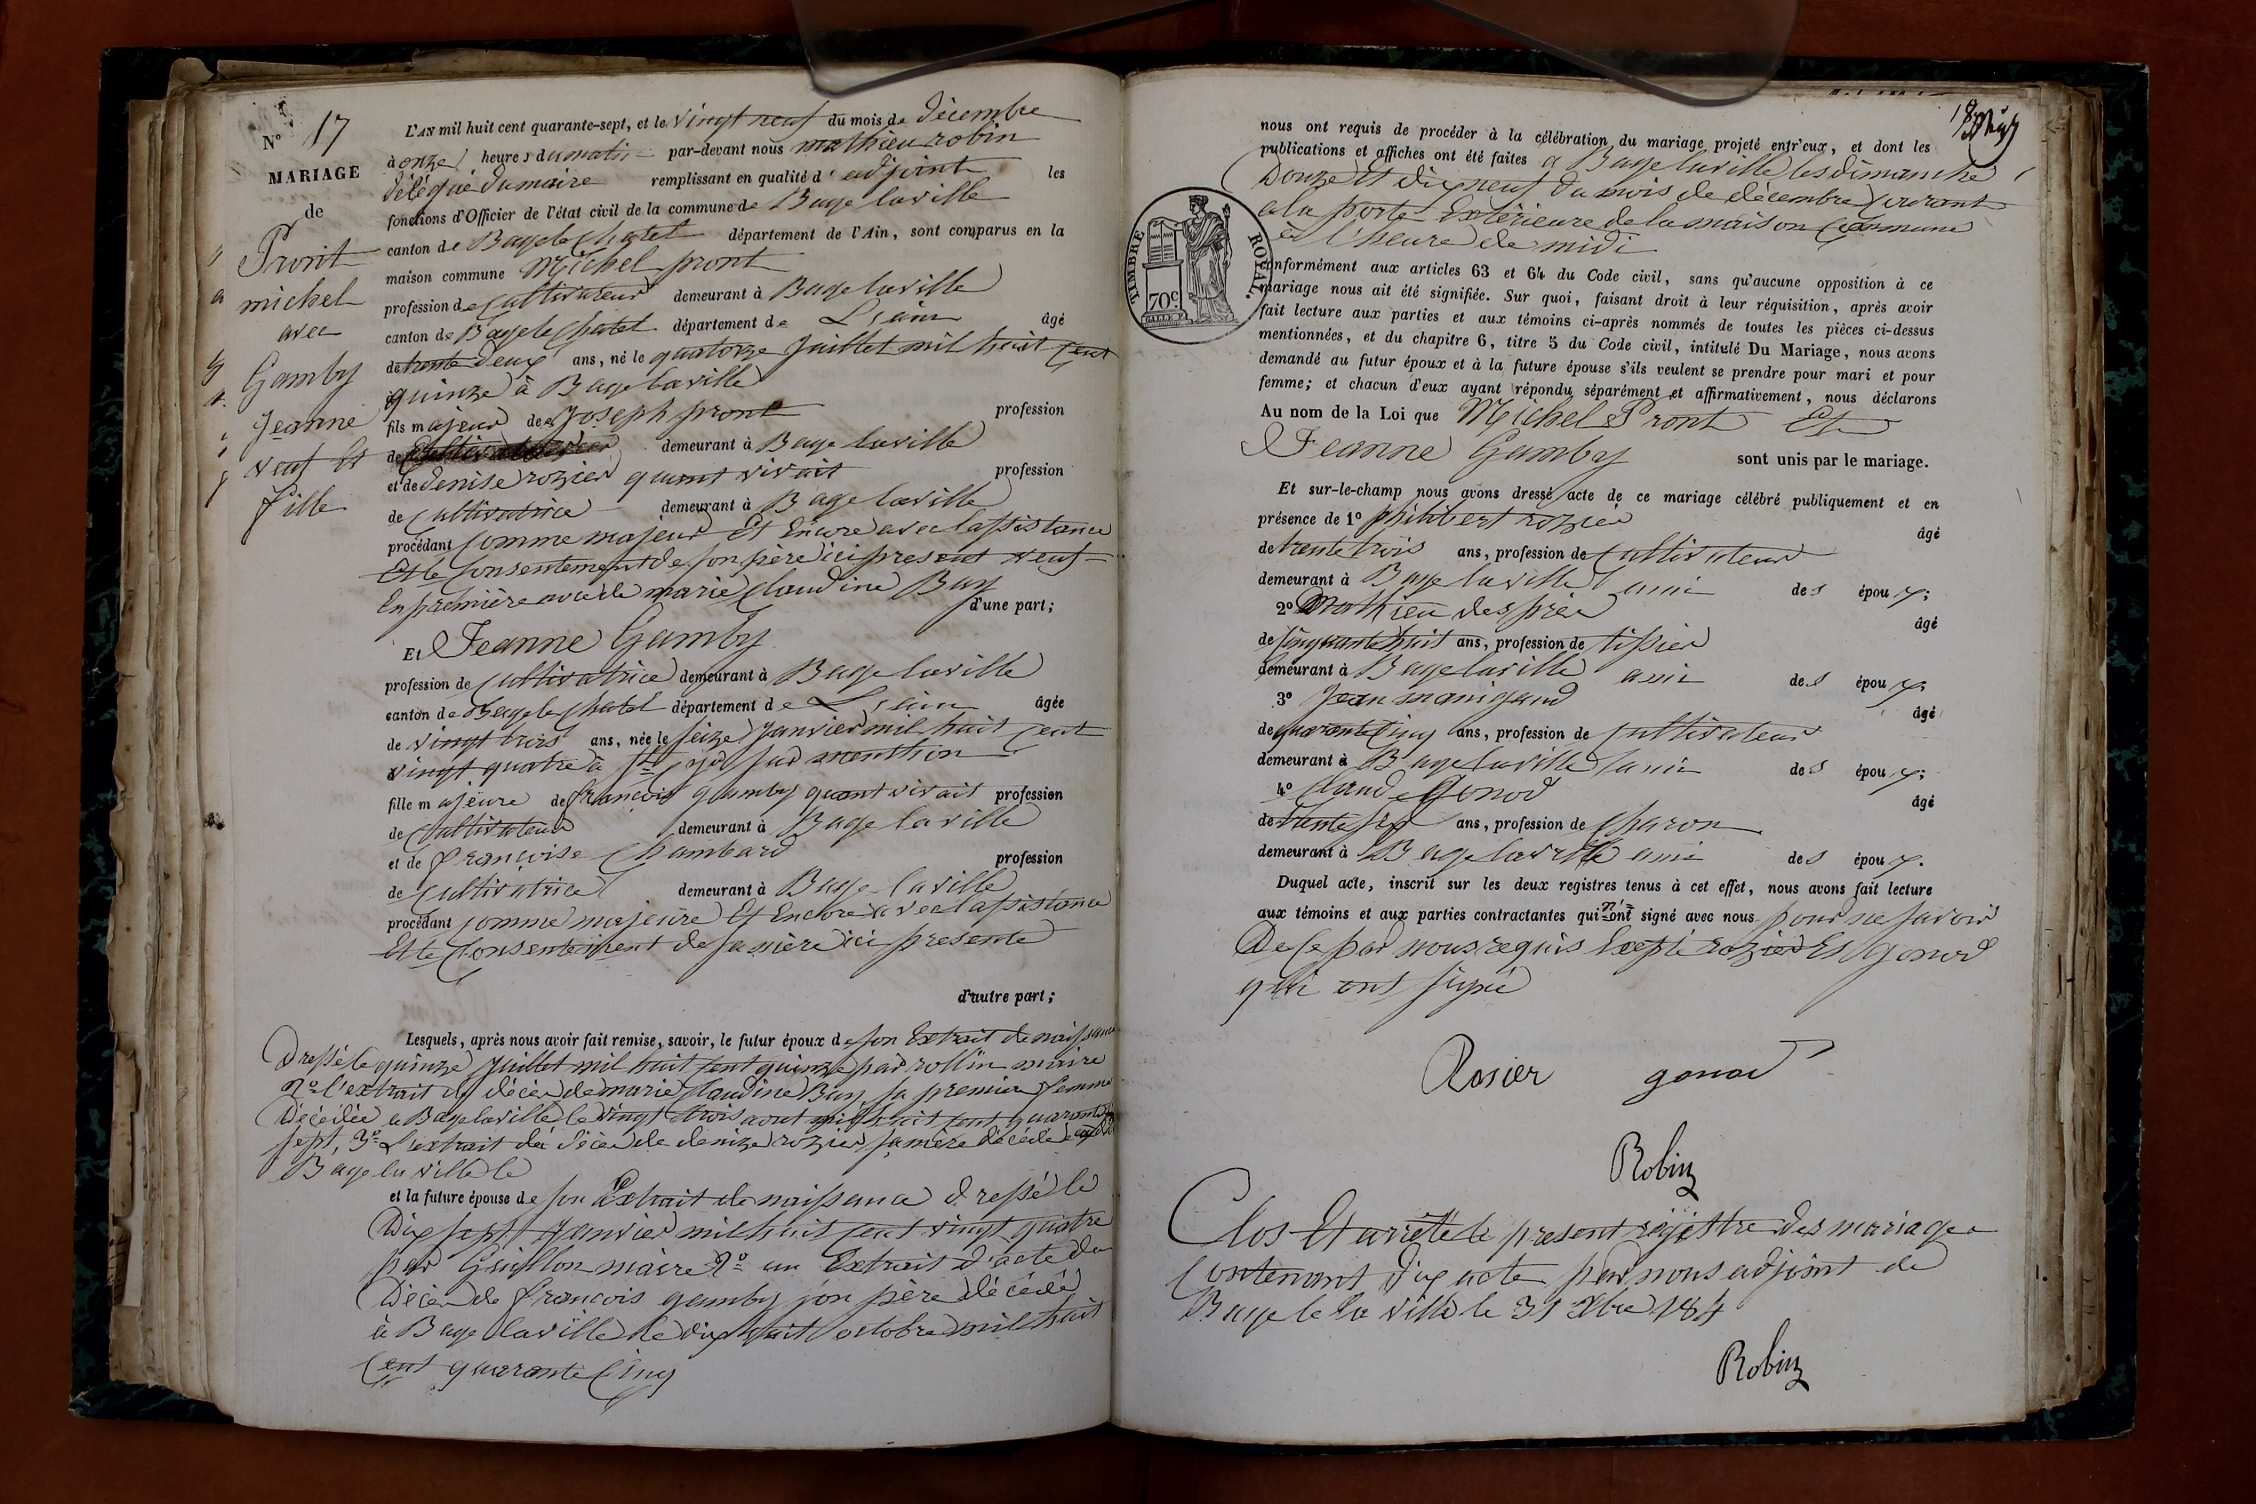 N° 17
MARIAGE
de
Pront
michel
avec
Gamby
Jeanne
veuf Et
fille
L'AN mil huit cent quarante-sept, et le vingt neuf du mois de Décembre
à onze heures du matin par-devant nous mathieu robin
délégué du maire remplissant en qualité d'adjoint les
fonctions d'Officier de l'état civil de la commune de Bage laville
canton de Bage le Chatel département de l'Ain, sont comparus en la
maison commune Michel pront
profession de cultivateur demeurant à Bage laville
canton de Bage le Chatel département de L'ain âgé
de trente deux ans, né le quatorze Juillet mil huit Cent
quinze à Bage laville
fils majeur de Joseph pront profession
de demeurant à Bage laville
et de denise rozier quant vivait profession
de Cultivatrice demeurant à Bage laville
procédant Comme majeur Et Encore avec lassistance
Et le Consentement de son père ici present veuf
En première avec de marie Claudine Buy
d'une part;
Et Jeanne Gamby
profession de Cultivatrice demeurant à Bage laville
canton de Bage le Chatel département de L'ain âgée
de vingt trois ans, née le seize Janvier mil huit Cent
vingt quatre à St Cyr sur menthon
fille majeure de francois gamby quant vivait profession
de Cultivateur demeurant à Bage laville
et de françoise Chambard profession
de Cultivatrice demeurant à Bage laville
procédant comme majeure Et Encore avec lassistance
Et le Consentement de sa mère ici presente
d'autre part;
Lesquels, après nous avoir fait remise, savoir, le futur époux de son Extrait de naissance
Dressé le quinze Juillet mil huit cent quinze par rollin maire
2° l'extrait de décès de marie Claudine Buy sa premier femme
Décédée a Bage laville le vingt trois aout mil huit cent quarante
sept, 3° L'extrait de décès de denize rozier sa mère décédée
Bage la ville le
et la future épouse de son Extrait de naissance dressé le
Dix sept Janvier mil huit cent vingt quatre
par Guillon maire 2° un Extrait d'acte de
Décès de francois gamby son père décédé
à Bage laville le dix huit octobre mil huit
Cent quarante Cinq
nous ont requis de procéder à la célébration du mariage projeté entr'eux, et dont les
publications et affiches ont été faites a Bage laville les dimanche
Douze et dix neuf du mois de décembre Courant
a la porte Extérieure de la maison Commune
à l'heure de midi
TIMBRE ROYAL.
70c.
conformément aux articles 63 et 64 du Code civil, sans qu'aucune opposition à ce
mariage nous ait été signifiée. Sur quoi, faisant droit à leur réquisition, après avoir
fait lecture aux parties et aux témoins ci-après nommés de toutes les pièces ci-dessus
mentionnées, et du chapitre 6, titre 5 du Code civil, intitulé Du Mariage, nous avons
demandé au futur époux et à la future épouse s'ils veulent se prendre pour mari et pour
femme; et chacun d'eux ayant répondu séparément et affirmativement, nous déclarons
Au nom de la Loi que Michel Pront Et
Jeanne Gamby sont unis par le mariage.
Et sur-le-champ nous avons dressé acte de ce mariage célébré publiquement et en
présence de 1° philibert rozier âgé
de trente trois ans, profession de Cultivateur
demeurant à Bage laville ami des époux;
2° Mathieu desprée âgé
de Cinquante huit ans, profession de tissier
demeurant à Bage laville ami des époux;
3° Jean manigand âgé
de quarante Cinq ans, profession de Cultivateur
demeurant à Bage laville ami des époux;
4° Claude Gonod âgé
de trente six ans, profession de Charon
demeurant à Bage laville ami des époux.
Duquel acte, inscrit sur les deux registres tenus à cet effet, nous avons fait lecture
aux témoins et aux parties contractantes qui n'ont signé avec nous pour ne savoir
De Ce par nous requis Excepté rozier Et Gonod
qui ont signé
Rosier gonod
Robin
Clos Et arrêté le present régistre des mariages
Contenant dix acte par nous adjoint de
Bage le la ville le 31 Xbre 184
Robin